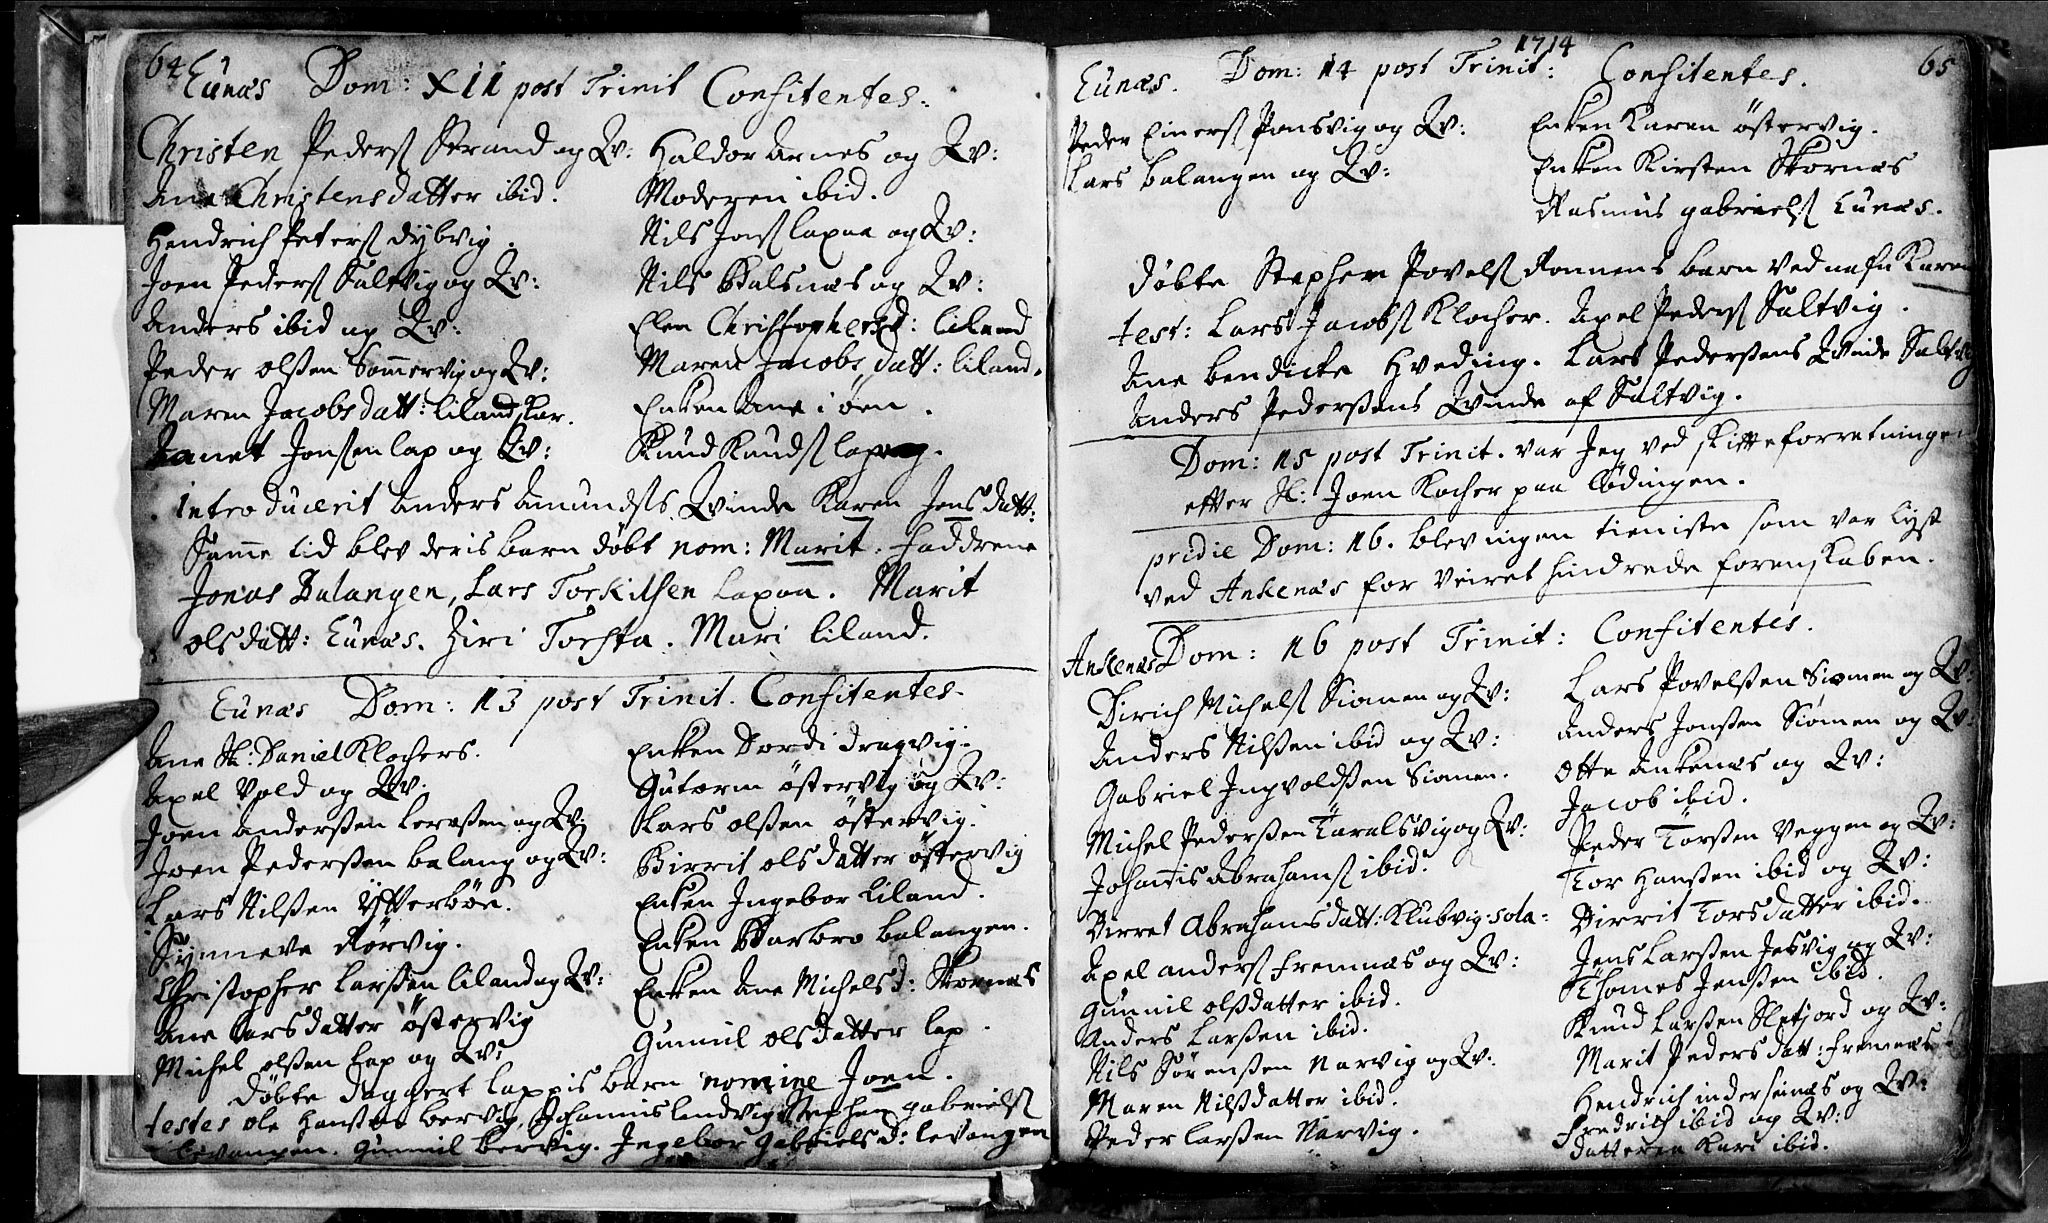 64
Eunæs Dom: XII post Trinit Confitentes.
Christen Peders Strand og Qv:
Ane Christensdatter ibid.
Hendrich Peters dybvig.
Joen Peders Saltvig og Qv:
Anders ibid og Qv:
Peder olssen Sommervig og Qv:
Maren Jacobsdatt: lilandskar.
Jonssen lap og Qv:
Haldor Arnes og Qv:
Moderen ibid.
Nils Jons lapaa og Qv:
Nils Balsnæs og Qv:
Elen Christophersd: liland
Maren Jacobsdatt: liland.
Enken Ane i öen.
Knud Knuds lap
introducerit Anders Amunds Qvinde Karen Jensdatt:
Samme tid blev deris barn döbt nom: Marit. Faddrene
Jonas Balangen, Lars Torkilsen Lapaa. Marit
olsdatt: Eunæs. Ziri Torsta. Mari liland.
Eunæs Dom: 13 post Trinit. Confitentes.
Ane Sl: Daniel Klochers.
Axel Vold og Qv:
Joen Anderssen og Qv:
Joen Pederssen balang og Qv:
Lars Nilssen ÿtterböe.
Synneve Rörvig.
Christopher Larssen liland og Qv:
Ane Larsdatter östervig
Michel olssen Lap og Qv:
Enken Dordi dragvig.
Gutorm östervig og Qv:
Lars olssen östervig.
Birrit olsdatter östervig
Enken Ingebor Liland.
Enken Barbro balangen.
Enken Ane Michelsd: Skornæs
Gunnil olsdatter lap.
döbte Daggert lappis barn nomine Joen.
testes ole Hanssen bervig, Johannis landvig Stephen gabriels
levangen. Gunnil bervig. Ingebor Gabrielsd: levangen
1714
65
Eunæs. Dom: 14 post Trinit: Confitentes.
Peder Einers Ponsvig og Qv:
Lars balangen og Qv:
Enken Karen östervig.
Enken Kirsten Skornæs
Rasmus gabriels Eunæs.
döbte Stephen Povels Ronnens barn ved nafn Karen
test: Lars Jacobs Klocher. Axel Peders Saltvig.
Ane bendicte Hveding. Lars Pederssens Qvinde Saltvig
Anders Pederssens Qvinde af Saltvig.
Dom: 15 post Trinit. var Jeg ved skifteforretningen
efter Sl: Joen Kocher paa lödingen.
pridie Dom: 16. blev ingen tieniste som var lyst
ved Ankenæs for Veiret hindrede forenskaben.
Ankenæs Dom: 16 post Trinit: Confitentes.
Dirich Michels Siomen og Qv:
Anders Nilssen ibid og Qv:
Gabriel Ingvoldssen Siomen.
Michel Pederssen Taralsvig og Qv:
Johannis Abrahams ibid.
Birret Abrahamsdatt: Klubvig: sola=
Axel anders fremnæs og Qv:
Gunnil olssdatter ibid.
Anders Larssen ibid.
Nils Sörenssen Narvig og Qv:
Maren Nilssdatter ibid.
Peder larssen Narvig.
Lars Povelssen Siomen og Qv:
Anders Jonssen Siömen og Qv:
Otte Ankenæs og Qv:
Jacob ibid.
Peder Torssen Veggen og Qv:
Tor Hanssen ibid og Qv:
Birrit Torsdatter ibid.
Jens Larssen og Qv:
Thomes Jenssen ibid.
Knud Larssen Slefjord og Qv:
Marit Pedersdatt: fremnæs
Hendrich inderseinæs og Qv:
Fredrich ibid og Qv:
datteren Kari ibid.